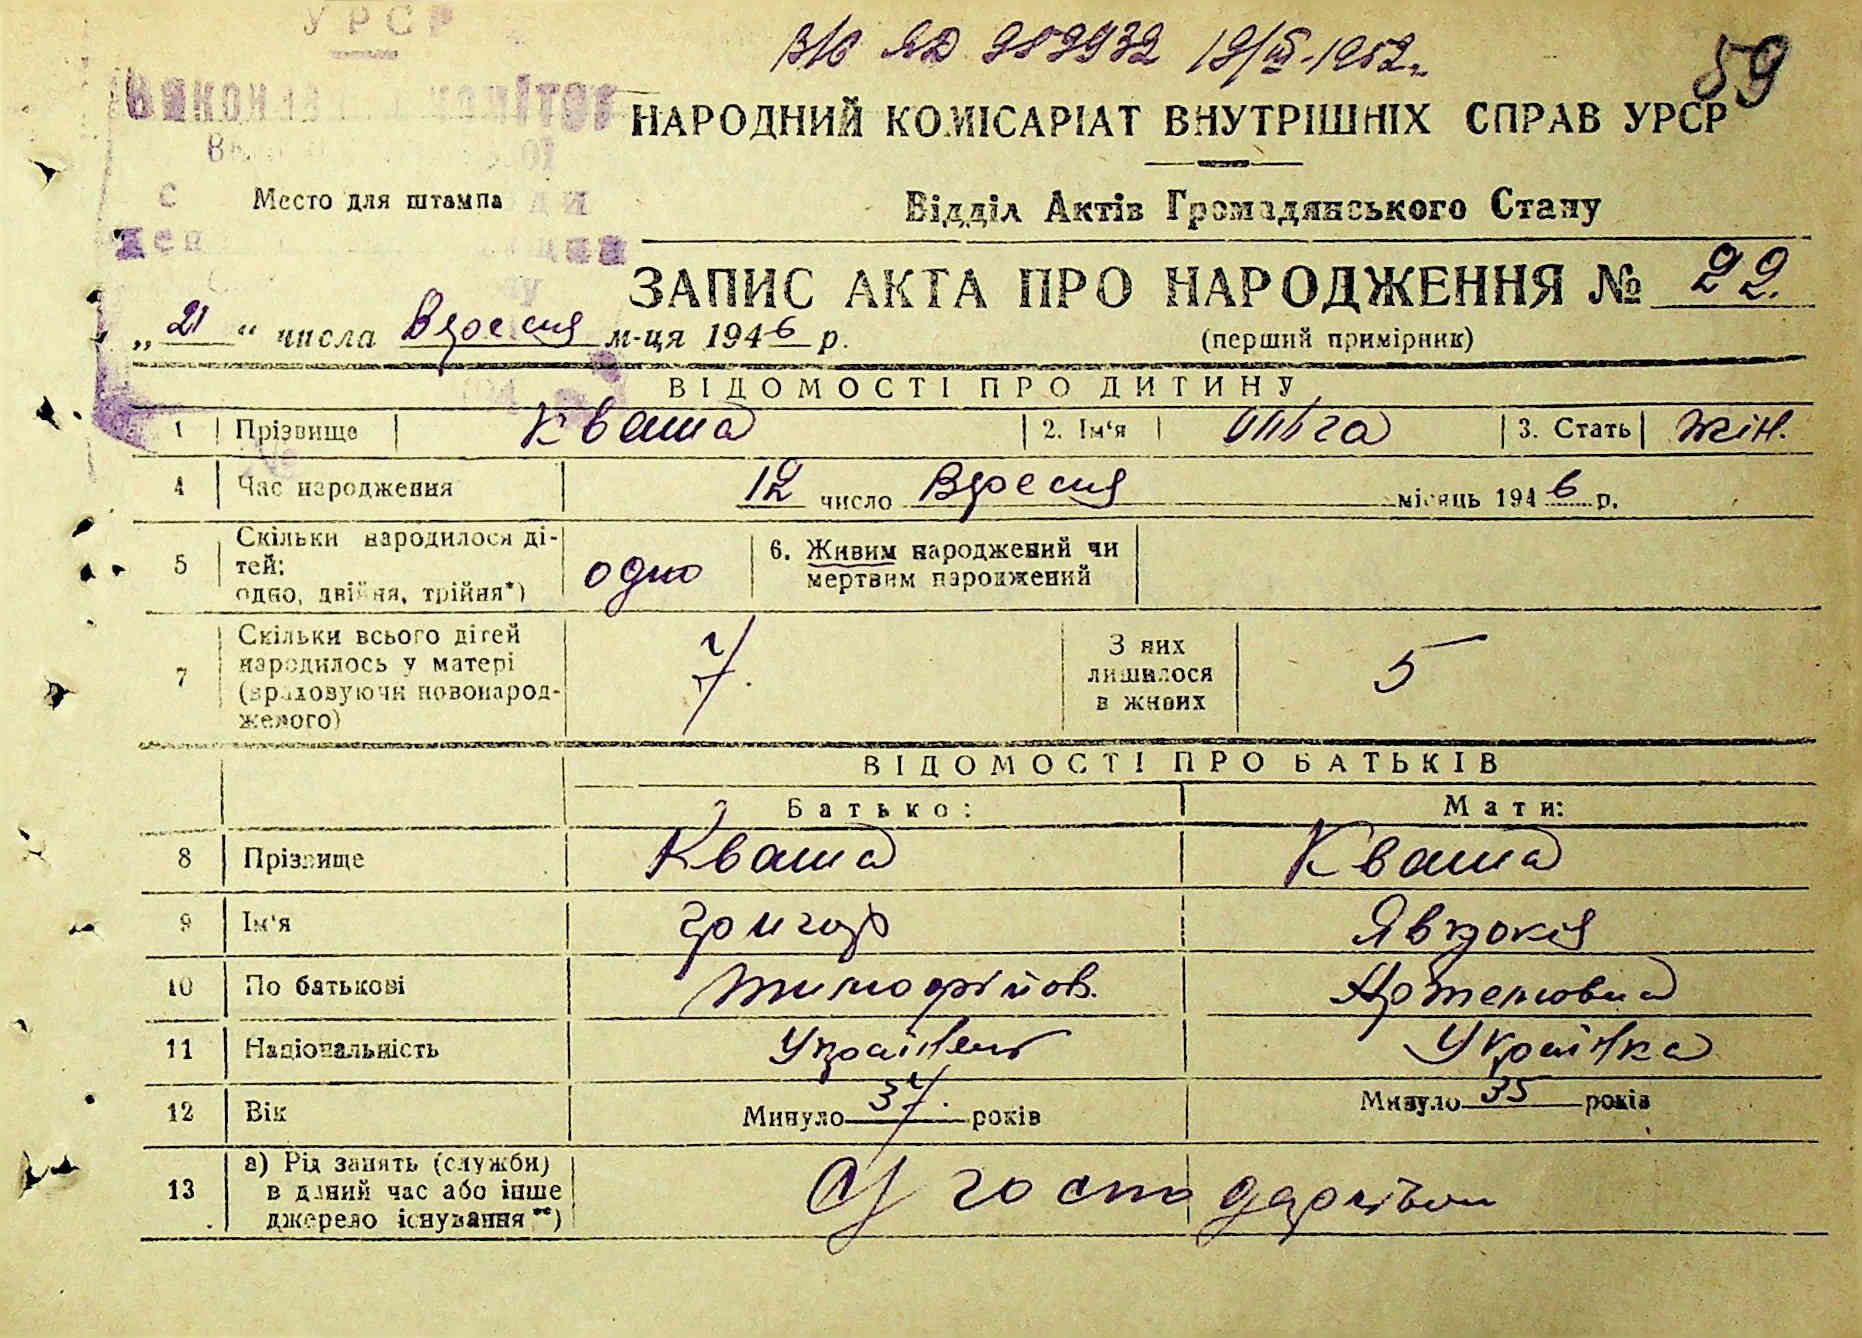 УРСР
В/С ЯД 989932 19/III-1952г.
59
НАРОДНИЙ КОМІСАРІАТ ВНУТРІШНІХ СПРАВ УРСР
Место для штампа
Відділ Актів Громадянського Стану
ЗАПИС АКТА ПРО НАРОДЖЕННЯ № 22.
„21“ числа Вересня м-ця 1946 р.
(перший примірник)
ВІДОМОСТІ ПРО ДИТИНУ
1 Прізвище Кваша 2. Ім‘я Ольга 3. Стать жін.
4 Час народження 12 число Вересня місяць 1946 р.
5 Скільки народилося ді-
тей:
одно, двійня, трійня*) одно
6. Живим народжений чи
мертвим народжений
7 Скільки всього дітей
народилось у матері
(враховуючи новонарод-
женого) 7.
З них
лишилося
в живих 5
ВІДОМОСТІ ПРО БАТЬКІВ
Батько: Мати:
8 Прізвище Кваша Кваша
9 Ім‘я Григор Явдокія
10 По батькові Тимофійов. Артемовна
11 Національність Українець Українка
12 Вік Минуло 37. років Минуло 35 років
13 а) Рід занять (служби)
в даний час або інше
джерело існування**) С/господарстві